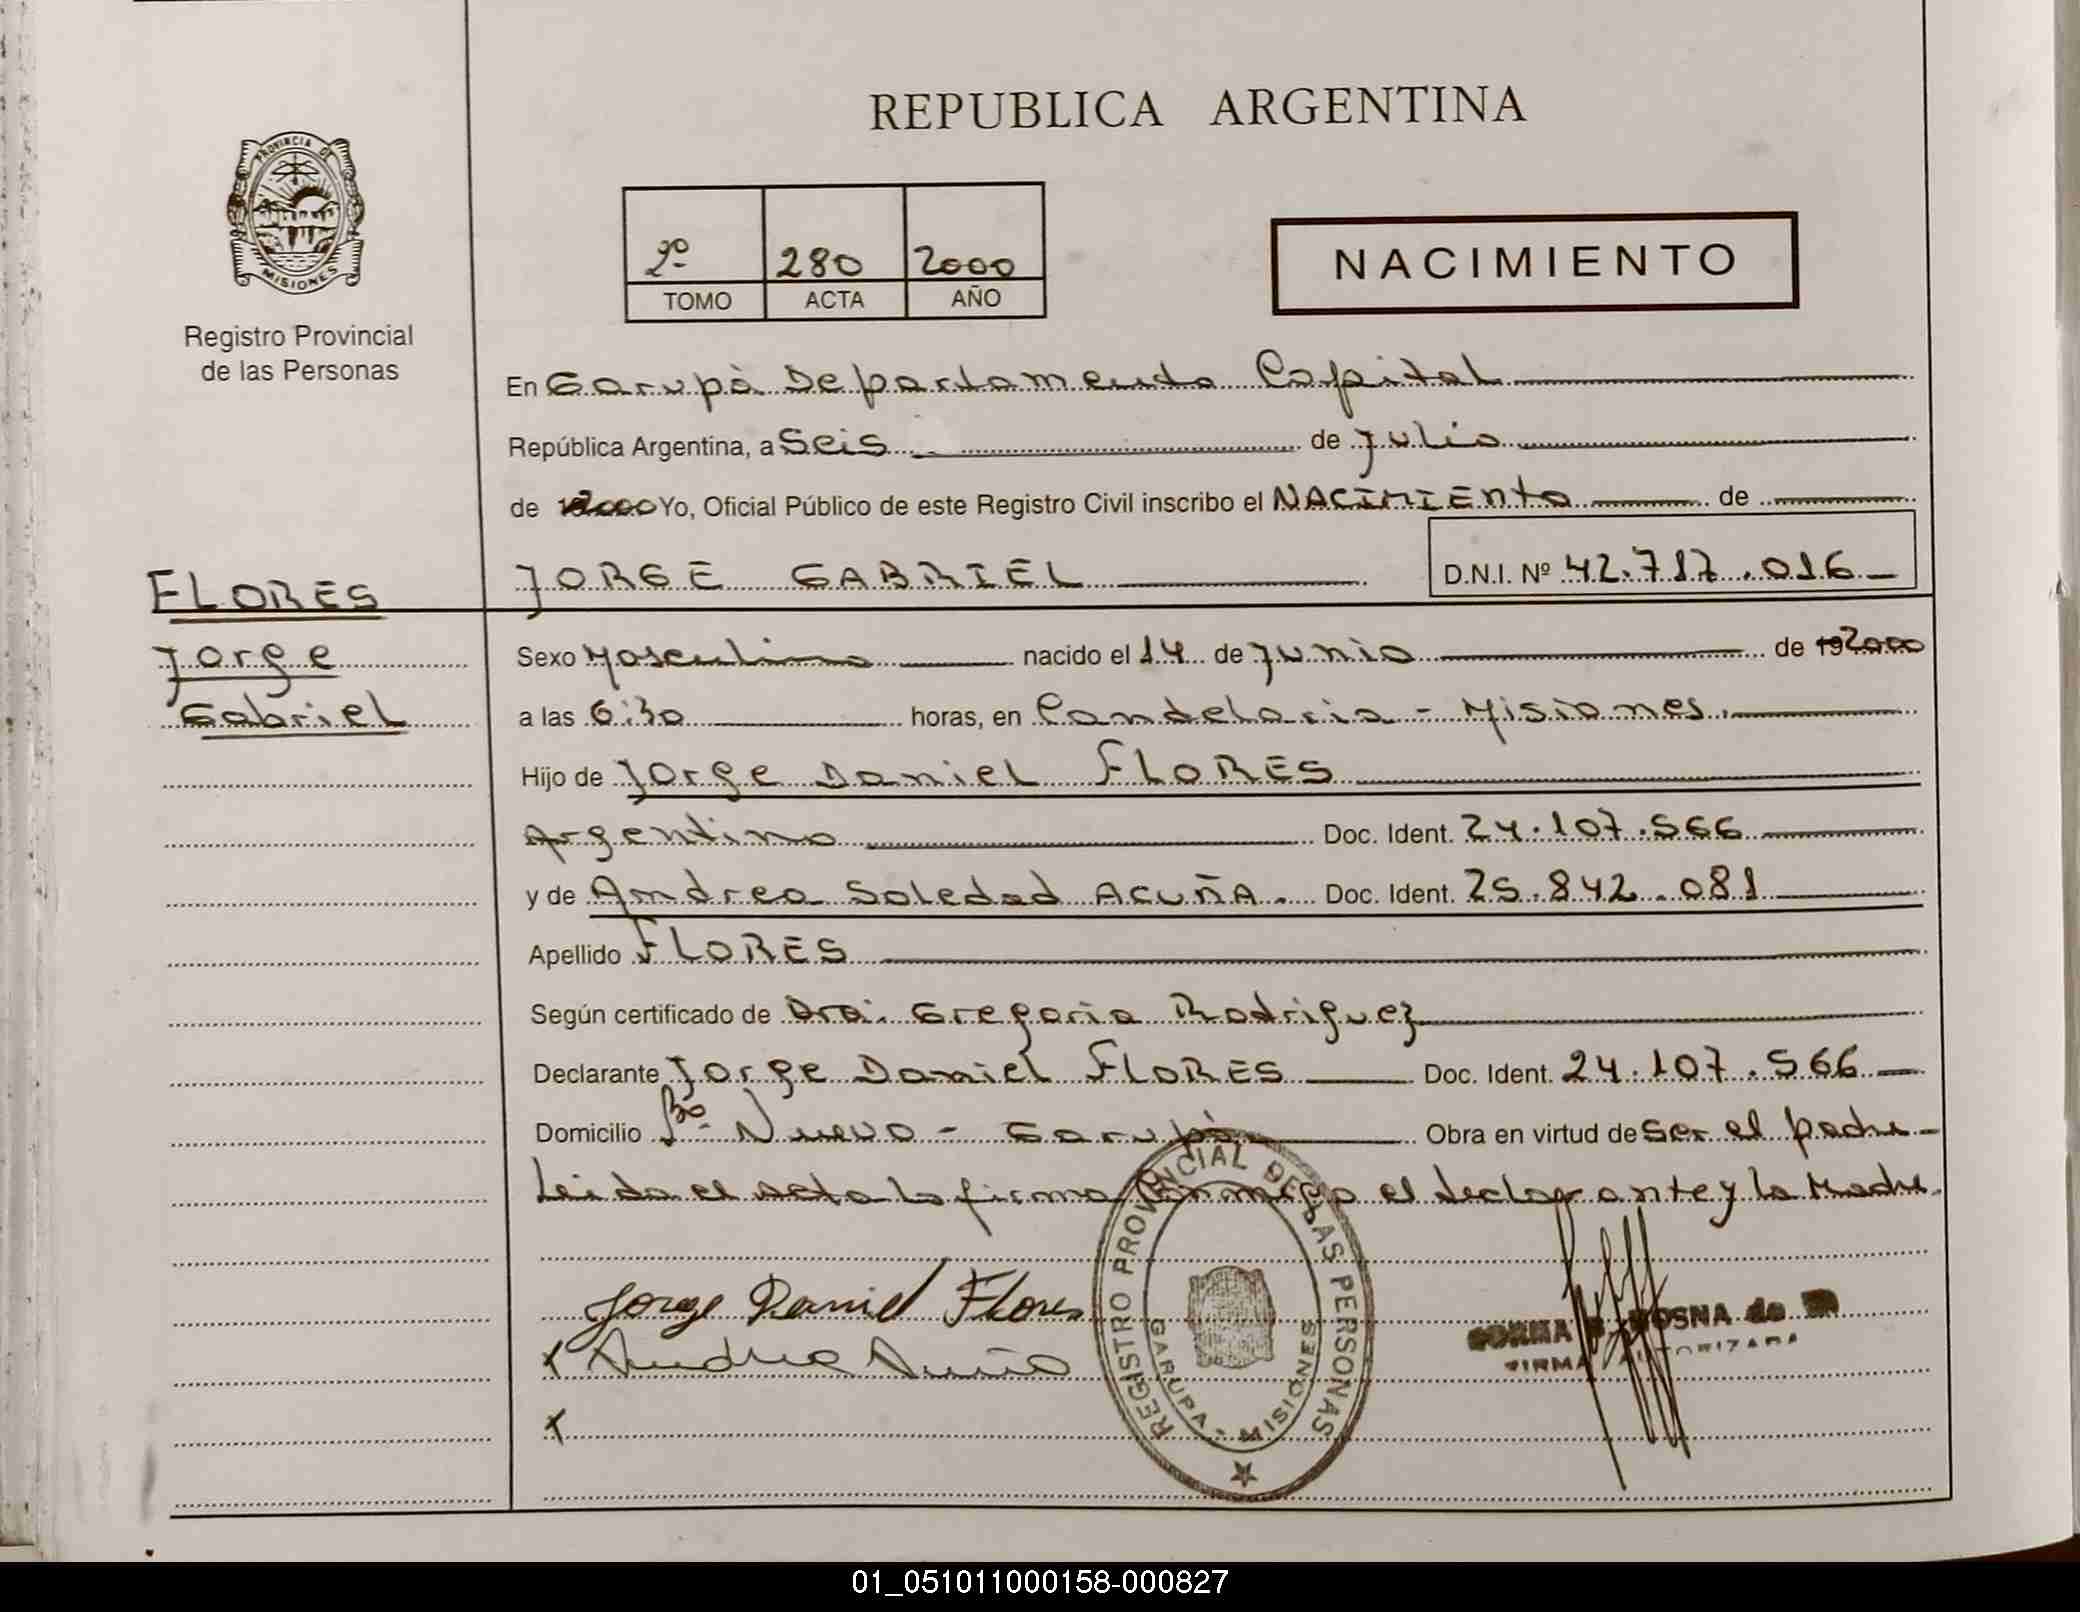 REPUBLICA ARGENTINA
PROVINCIA DE
MISIONES
Registro Provincial
de las Personas
2º 280 2000
TOMO ACTA AÑO
NACIMIENTO
En Garupà Departamento Capital
República Argentina, a Seis de Julio
de 2000 Yo, Oficial Público de este Registro Civil inscribo el NACIMIENTO de
JORGE GABRIEL D.N.I. Nº 42.717.016
FLORES
Jorge
Gabriel
Sexo Masculino nacido el 14 de Junio de 192000
a las 6:30 horas, en Candelaria - Misiones.
Hijo de Jorge Daniel FLORES
Argentino Doc. Ident. 24.107.566
y de Andrea Soledad ACUÑA. Doc. Ident. 25.842.081
Apellido FLORES
Según certificado de Dra. Gregoria Rodriguez
Declarante Jorge Daniel FLORES Doc. Ident. 24.107.566
Domicilio Bº Nuevo - Garupà Obra en virtud de Ser el padre
Leida el acta la firma conmigo el declarante y la Madre.
Jorge Daniel Flores
x Andrea Acuña
x
REGISTRO PROVINCIAL DE LAS PERSONAS
GARUPA - MISIONES
OSNA de
FIRMA AUTORIZADA
01_051011000158-000827